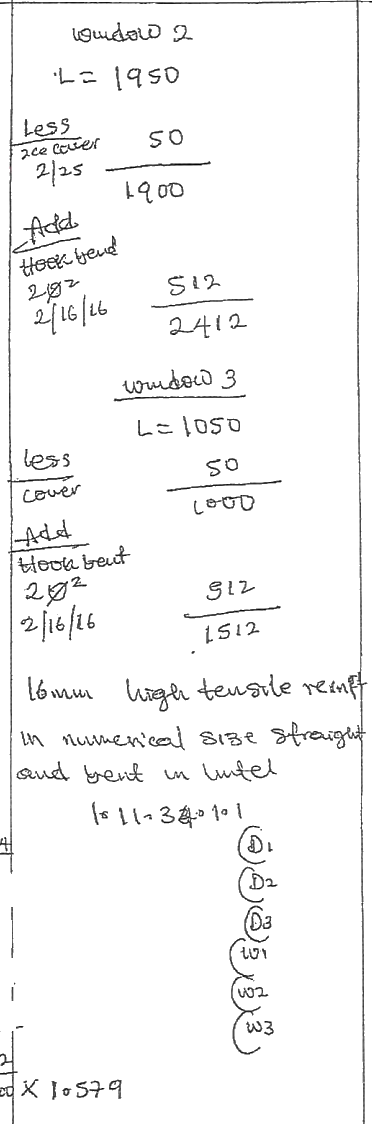 window 2
L = 1950
Less
2ce cover 50
2/25
1900
Add
Hook bend
2Ø²
2/16/16 512
2412
window 3
L = 1050
Less 50
cover
1000
Add
Hook bent
2Ø² 512
2/16/16
1512
16mm high tensile reinft
in numerical size straight
and bent in lintel
1.11.34.10.1
4
D1
D2
D3
W1
W2
W3
2
X 1.579